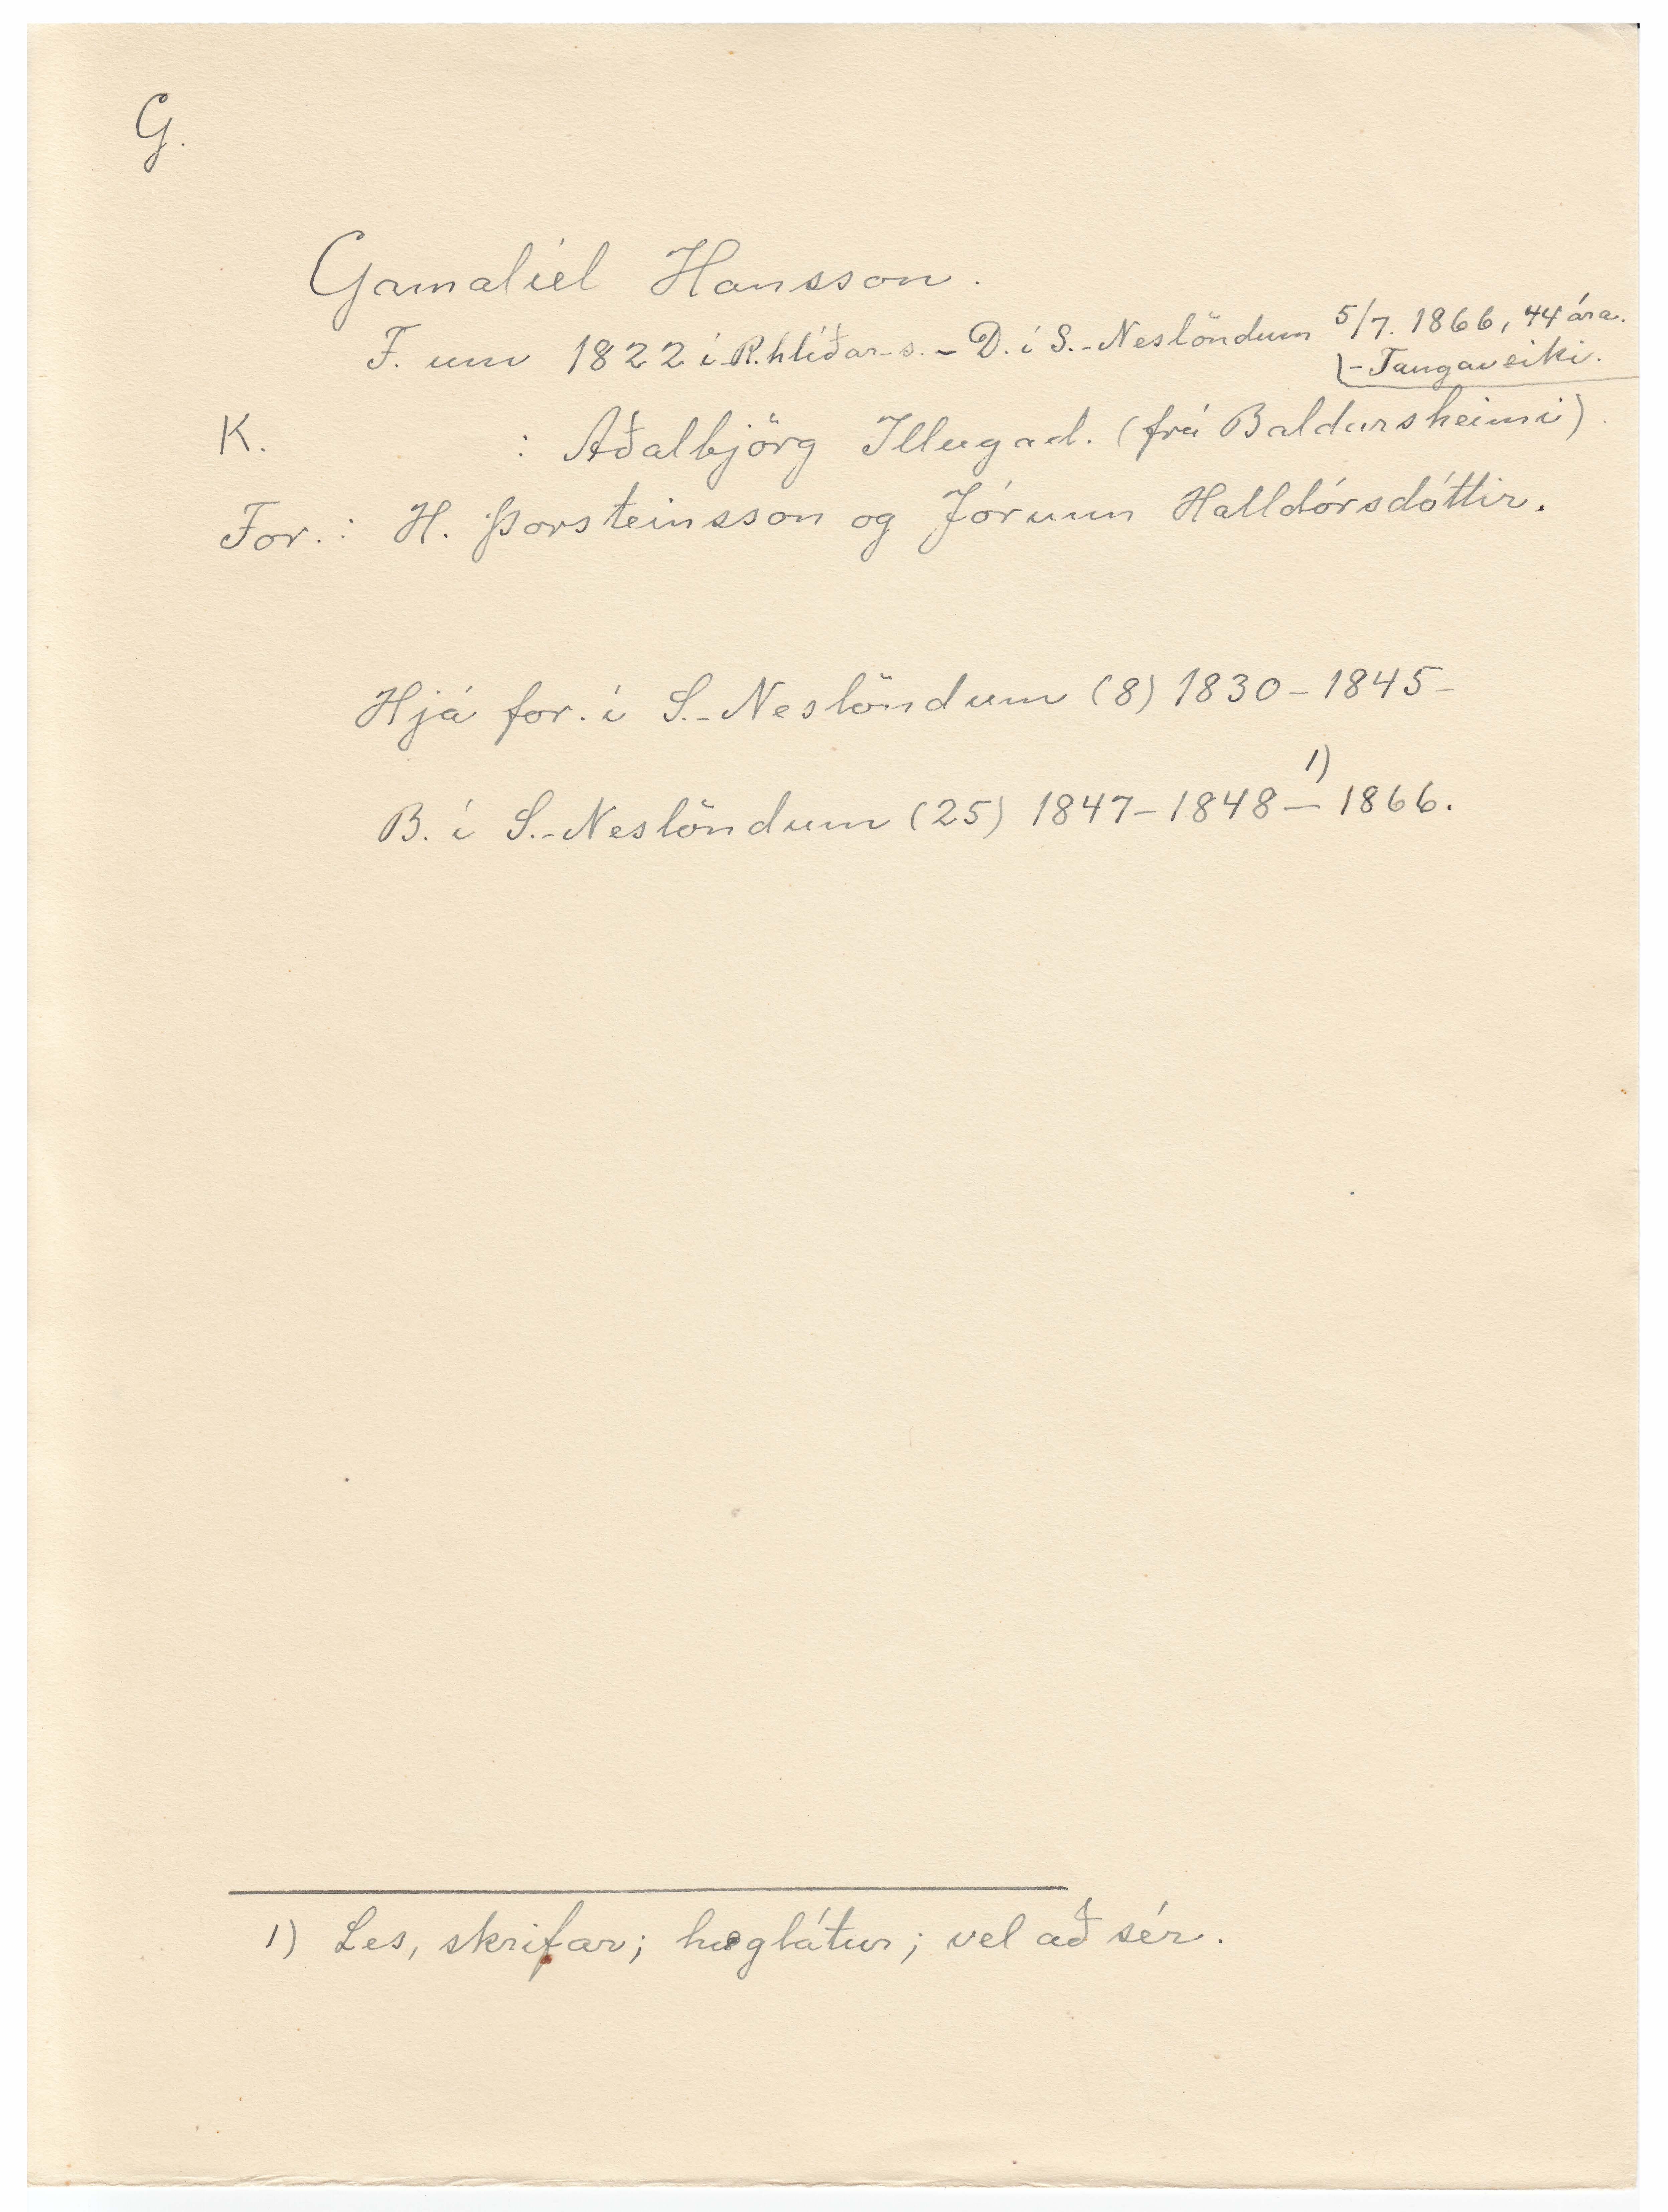 G.
Gamalíel Hansson.
F. um 1822 í R.hlíðar-s. - D. í S.-Neslöndum 5/7. 1866, 44 ára.
- Taugaveiki.
K. : Aðalbjörg Illugad. (frá Baldursheimi)
For.: H. Þorsteinsson og Jórunn Halldórsdóttir.
Hjá for. í S.-Neslöndum (8) 1830-1845-
B. í S.-Neslöndum (25) 1847-1848-1) 1866.
1) Les, skrifar; hæglátur; vel að sér.